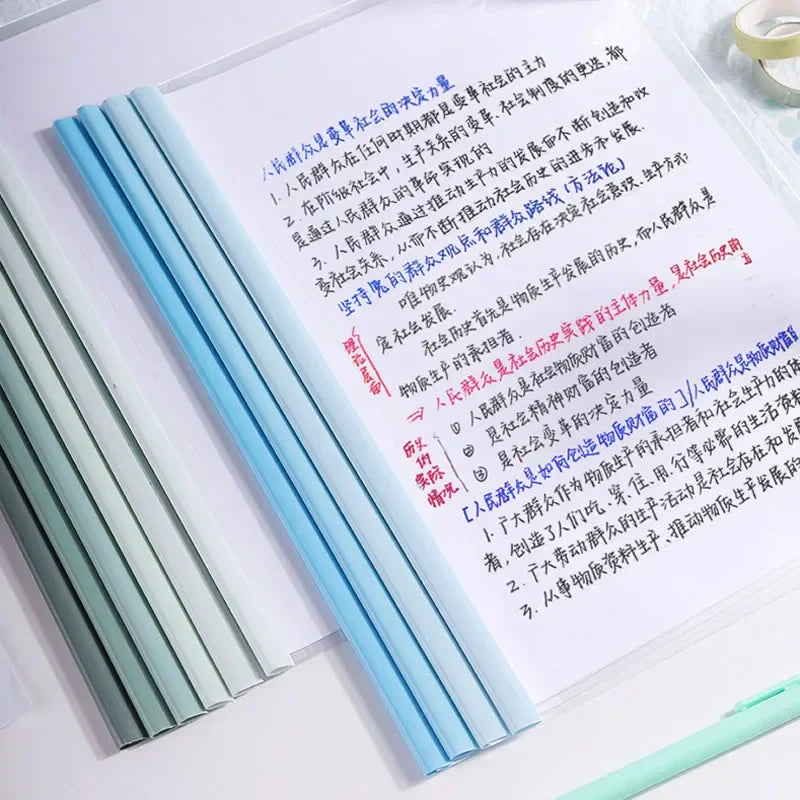 人民群众是变革社会的决定力量
1. 人民群众在任何时期都是变革社会的主力
2. 在阶级社会中，生产关系的变革、社会制度的更迭，都
是通过人民群众的革命实现的
3. 人民群众通过推动生产力的发展而不断创造和改
变社会关系，从而不断推动社会历史的进步和发展.
坚持党的群众观点和群众路线（方法论）
唯物史观认为，社会存在决定社会意识，生产方式
定社会发展.
社会历史首先是物质生产发展的历史，而人民群众是
物质生产的承担者.
理论层面
⇒ 人民群众是社会历史实践的主体力量，是社会历史的
① 人民群众是社会物质财富的创造者
② 是社会精神财富的创造者
③ 是社会变革的决定力量
历史的实际情况
[人民群众是如何创造物质财富的]/人民群众是物质财富的
1. 广大群众作为物质生产的承担者和社会生产力的体
者，创造了人们吃、穿、住、用、行等必需的生活资料
2. 广大劳动群众的生产活动是社会存在和发展
3. 从事物质资料生产、推动物质生产发展的